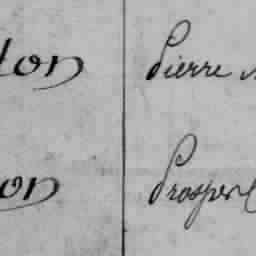 ton Pierre
on Prosper